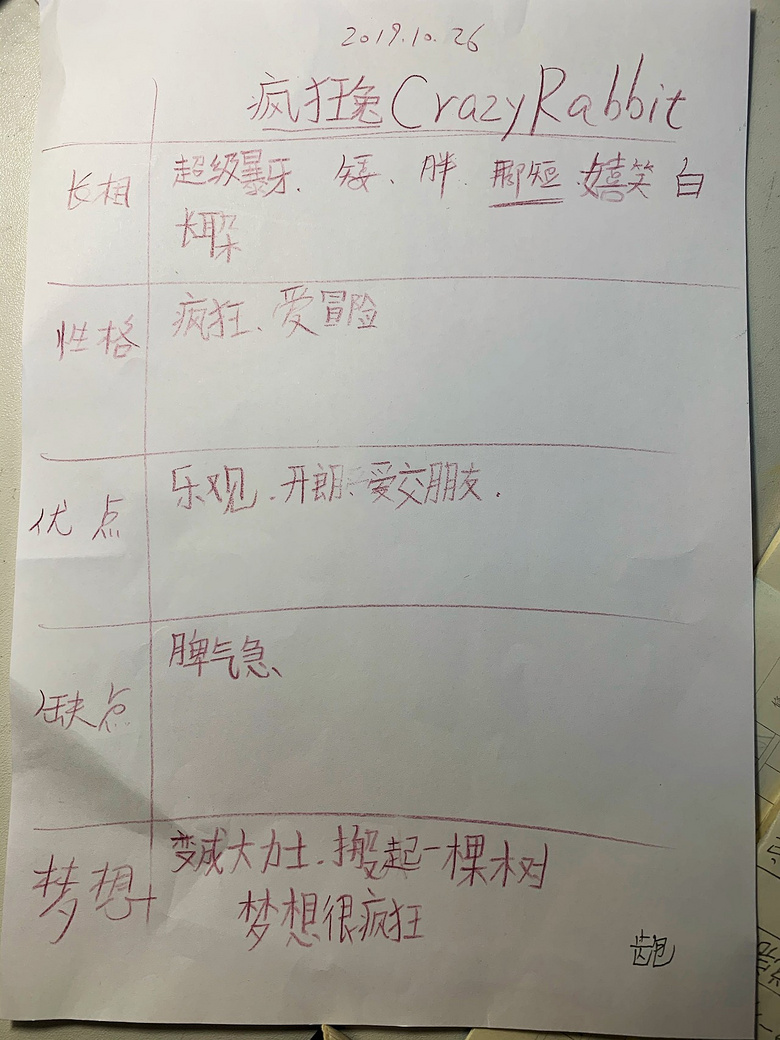 2019.10.26
疯狂兔CrazyRabbit
长相
超级暴牙、矮、胖、脚短、嬉笑 白
长耳朵
性格
疯狂、爱冒险
优点
乐观、开朗、爱交朋友.
缺点
脾气急、
梦想
变成大力士.搬起一棵树
梦想很疯狂
龅